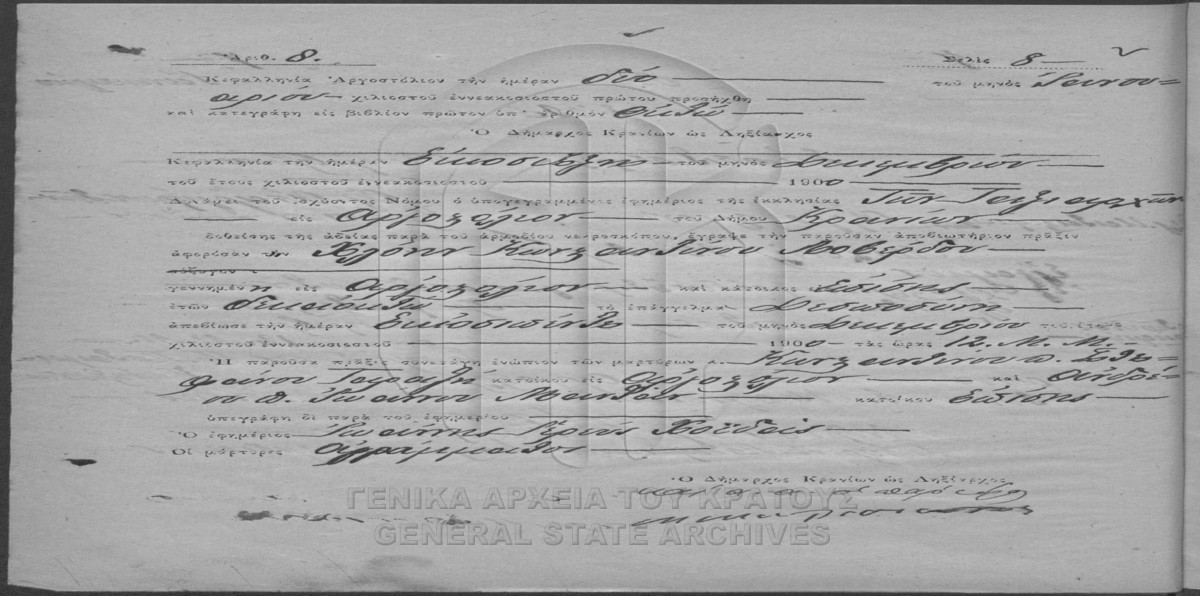 Ἀριθ. 8. Σελὶς 8
Κεφαλληνία Ἀργοστόλιον τὴν ἡμέραν δύο τοῦ μηνὸς Ἰανου=
αρίου χιλιοστοῦ ἐννεακοσιοστοῦ πρώτου προσήχθη
καὶ κατεγράφη εἰς βιβλίον πρῶτον ὑπ' ἀριθμὸν ὀκτώ
Ὁ Δήμαρχος Κρανίων ὡς Ληξίαρχος
Κεφαλληνία τὴν ἡμέραν εἰκοσιέξη τοῦ μηνὸς Δεκεμβρίου
τοῦ ἔτους χιλιοστοῦ ἐννεακοσιοστοῦ 1900
Δυνάμει τοῦ ἰσχύοντος Νόμου ὁ ὑπογεγραμμένος ἐφημέριος τῆς ἐκκλησίας Τῶν Ταξιαρχῶν
εἰς Ἀργοστόλιον τοῦ Δήμου Κρανίων
δοθείσης τῆς ἀδείας παρὰ τοῦ ἁρμοδίου νεκροσκόπου, ἔγραψε τὴν παροῦσαν ἀποβιωτήριον πρᾶξιν
ἀφορῶσαν τὴν Κωνσταντίνου
σύζυγον
γεννημένη εἰς Ἀργοστόλιον καὶ κάτοικος ἐπίσης
ἐτῶν δεκαοκτώ τὸ ἐπάγγελμα
ἀπεβίωσε τὴν ἡμέραν εἰκοσιπέντε τοῦ μηνὸς Δεκεμβρίου τοῦ ἔτους
χιλιοστοῦ ἐννεακοσιοστοῦ 1900 τὰς ὥρας 12. Μ. Μ.
Ἡ παροῦσα πρᾶξις συνετάγη ἐνώπιον τῶν μαρτύρων Κωνσταντίνου π. Στε=
φάνου κατοίκου εἰς Ἀργοστόλιον καὶ Ἀνδρέ=
ου π. Ἰωάννου κατοίκου ἐπίσης
ὑπεγράφη δὲ παρὰ τοῦ ἐφημερίου
Ὁ ἐφημέριος Ἰωάννης Ἱερεὺς
Οἱ μάρτυρες ἀγράμματοι
Ὁ Δήμαρχος Κρανίων ὡς Ληξίαρχος
ΓΕΝΙΚΑ ΑΡΧΕΙΑ ΤΟΥ ΚΡΑΤΟΥΣ
GENERAL STATE ARCHIVES